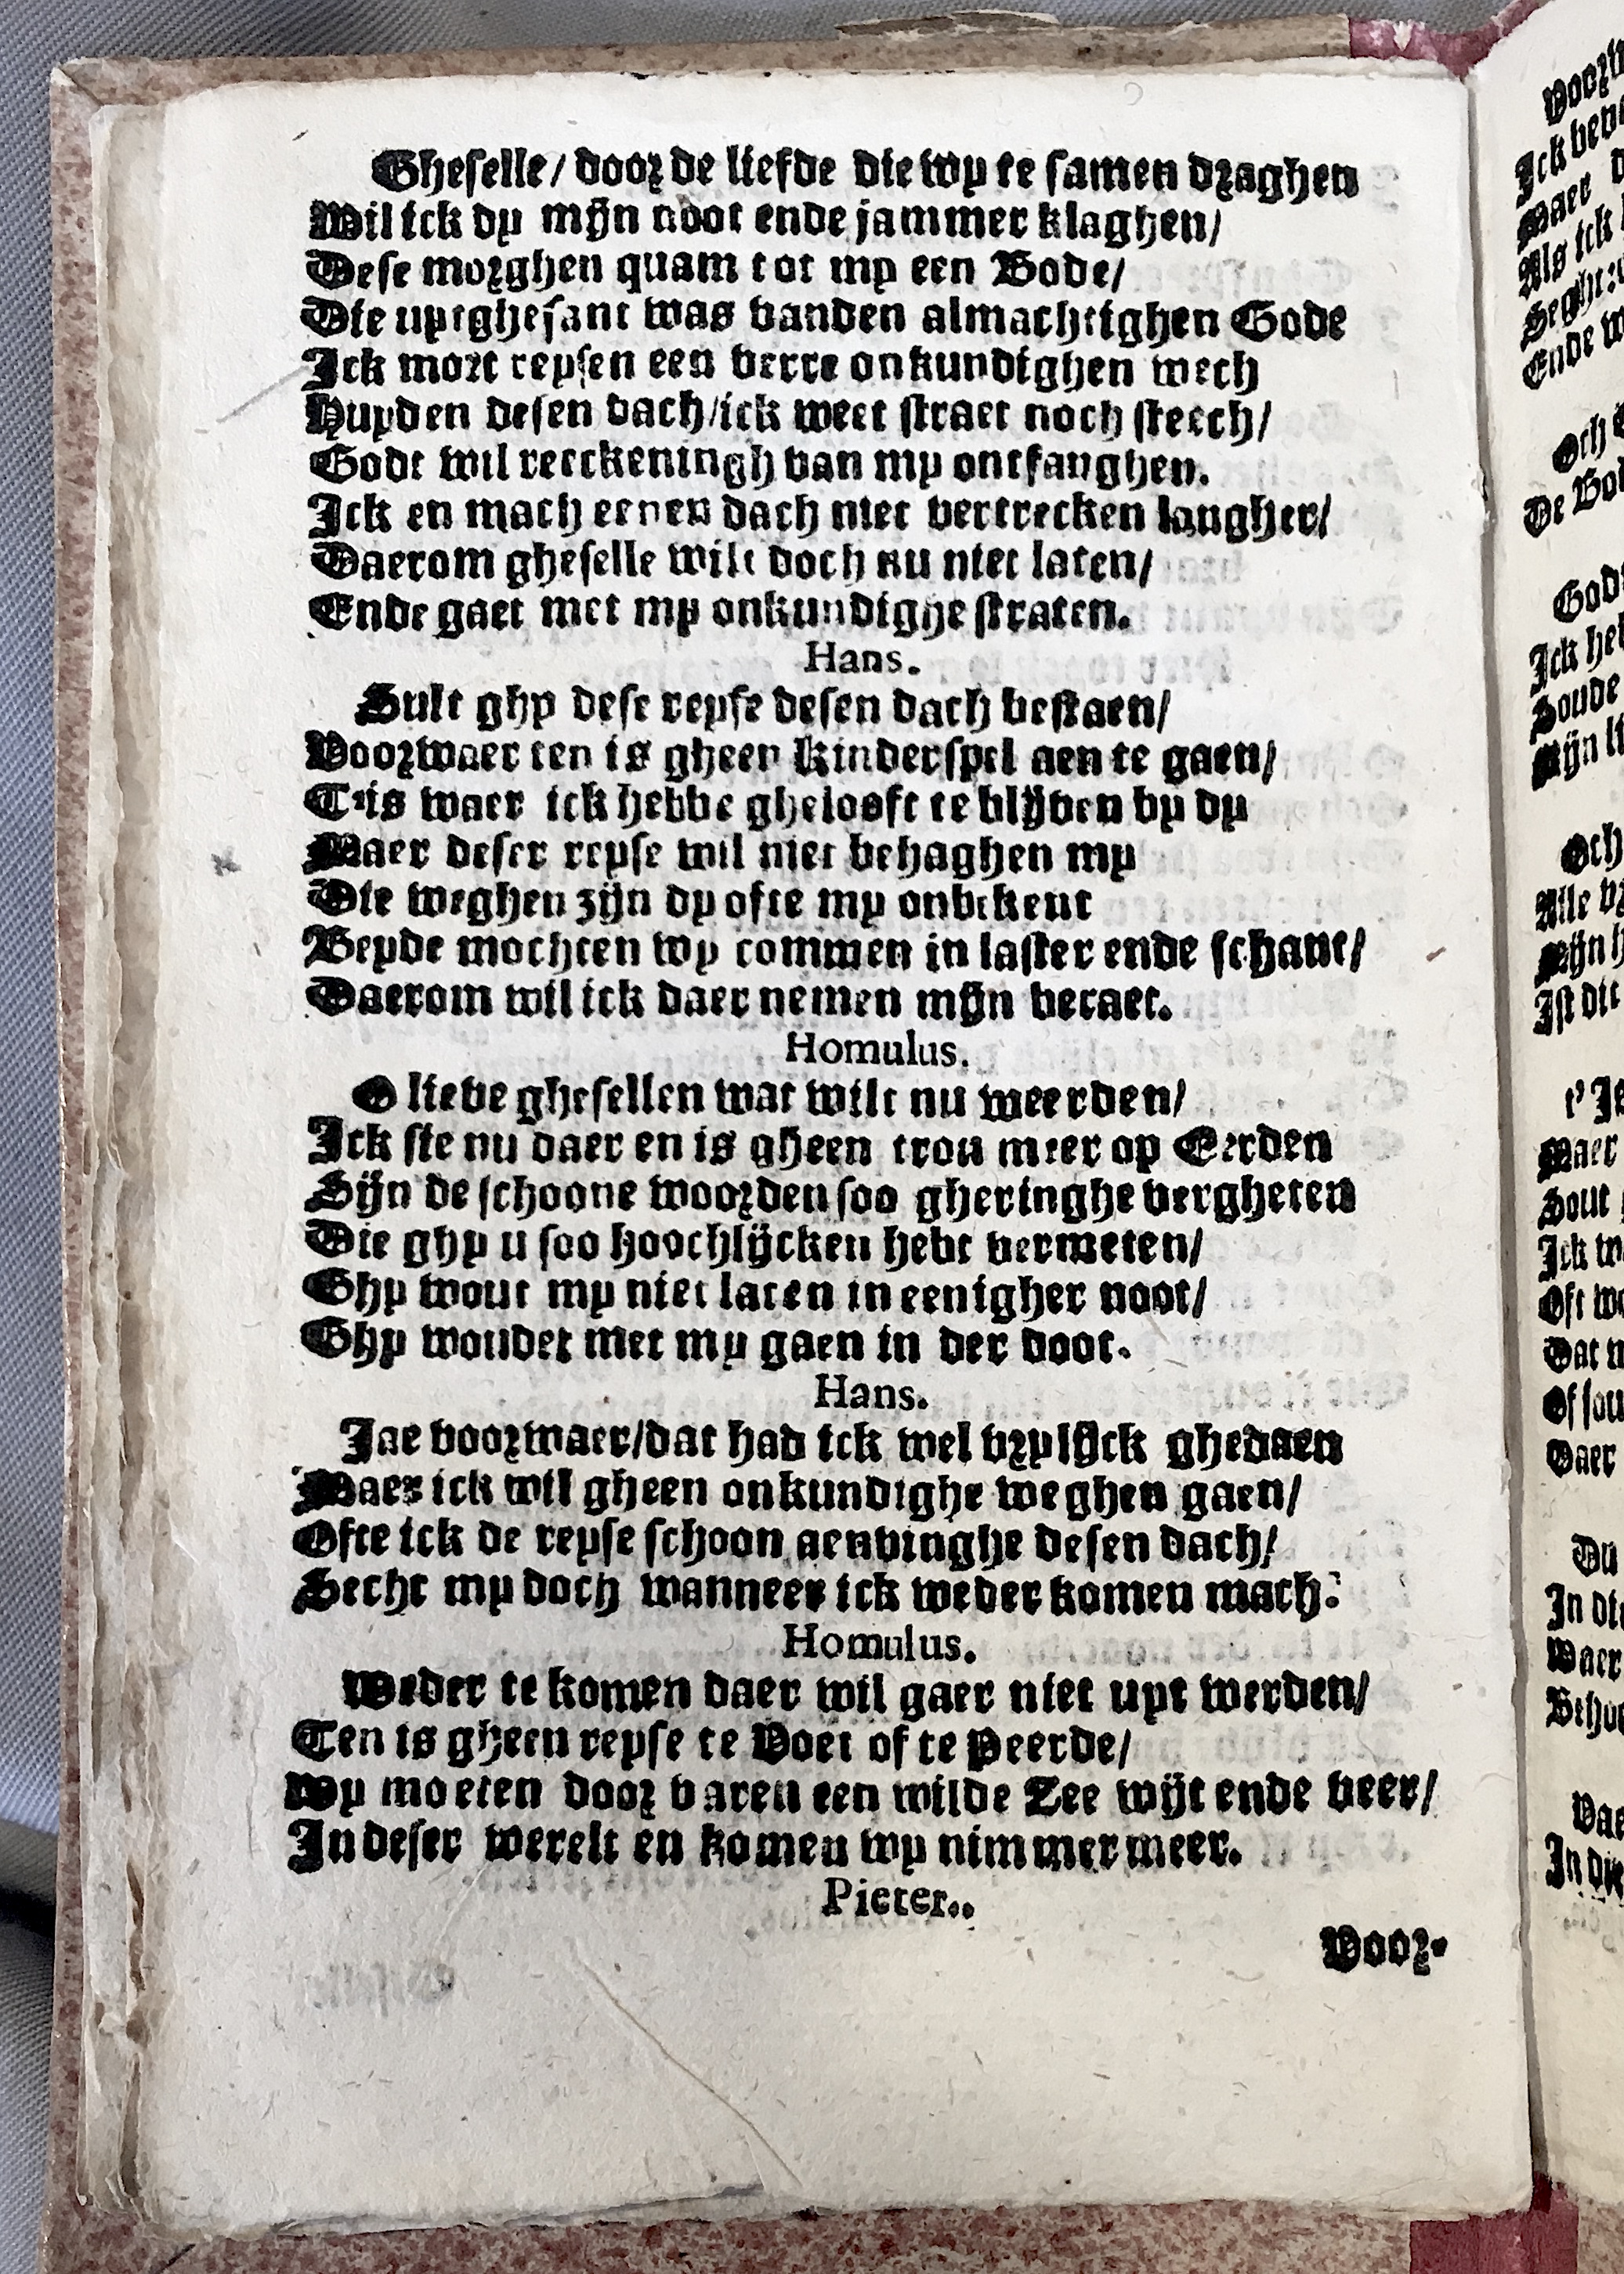 Gheselle/ door de liefde die wy te samen draghen
Wil ick dy mijn noot ende jammer klaghen/
Dese morghen quam tot my een Bode/
Die uytghesant was vanden almachtighen Gode
Ick moet reysen een verre onkundighen wech
Huyden desen dach/ick weet straet noch steech/
Godt wil reeckeningh van my ontfanghen.
Ick en mach eenen dach niet vertrecken langher/
Daerom gheselle wilt doch nu niet laten/
Ende gaet met my onkundighe straten.
Hans.
Sult ghy dese reyse desen dach bestaen/
Voorwaer ten is gheen kinderspel aen te gaen/
T'is waer ick hebbe ghelooft te blijven by dy
Maer deser reyse wil niet behaghen my
Die weghen zijn dy ofte my onbekent
Beyde mochten wy commen in laster ende schant/
Daerom wil ick daer nemen mijn beraet.
Homulus.
O lieve ghesellen wat wilt nu weerden/
Ick sie nu daer en is gheen trou meer op Eerden
Sijn de schoone woorden soo gheringhe vergheten
Die ghy u soo hoochlijcken hebt vermeten/
Ghy wout my niet laten in eenigher noot/
Ghy woudet met my gaen in der doot.
Hans.
Jae voorwaer/dat had ick wel vrylijck ghedaen
Maer ick wil gheen onkundighe weghen gaen/
Ofte ick de reyse schoon aenvinghe desen dach/
Secht my doch wanneer ick weder komen mach?
Homulus.
Weder te komen daer wil gaer niet uyt werden/
Ten is gheen reyse te Voet of te Peerde/
Wy moeten door varen een wilde Zee wijt ende veer/
In deser werelt en komen wy nimmermeer.
Pieter..
Voor-